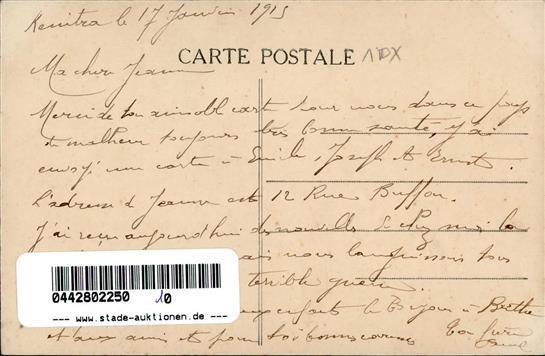 Kenitra le 17 Janvier 1915
CARTE POSTALE
Ma chere Jeanne
Merci de ton aimable carte pour nous dans ce pays
de malheur toujours très bonne santé, j'ai
envoyé une carte à Emile, Joseph et Ernest.
L'adresse d Jeanne est 12 Rue Buffon.
J'ai reçu aujourd'hui des nouvelles de chez moi la
nous languissons tous
terrible guerre
le Bijou à Berthe
et pour toi bonnes caresses Ton frère
0442802250
--- www.stade-auktionen.de ---